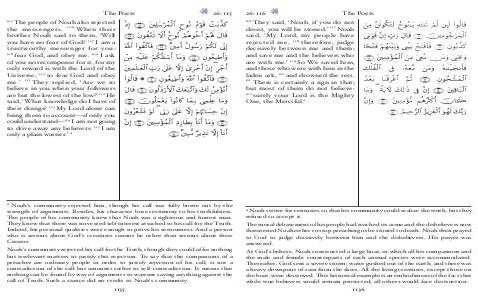 The Poets
26: 115
The people of Noah also rejected
the messengers. When their
brother Noah said to them, 'Will
you have no fear of God? I am a
trustworthy messenger for you:
fear God, and obey me. I ask
of you no recompense for it, for my
only reward is with the Lord of the
Universe, so fear God and obey
me.' They replied, 'Are we to
believe in you when your followers
are but the lowest of the low?' He
said, 'What knowledge do I have of
their doings? My Lord alone can
bring them to account—if only you
could understand— I am not going
to drive away any believers. I am
only a plain warner.'
كَذَّبَتْ قَوْمُ نُوحٍ الْمُرْسَلِينَ
إِذْ قَالَ لَهُمْ أَخُوهُمْ نُوحٌ أَلَا تَتَّقُونَ
إِنِّي لَكُمْ رَسُولٌ أَمِينٌ فَاتَّقُوا اللَّهَ
وَأَطِيعُونِ وَمَا أَسْأَلُكُمْ عَلَيْهِ مِنْ
أَجْرٍ إِنْ أَجْرِيَ إِلَّا عَلَى رَبِّ الْعَالَمِينَ
فَاتَّقُوا اللَّهَ وَأَطِيعُونِ قَالُوا
أَنُؤْمِنُ لَكَ وَاتَّبَعَكَ الْأَرْذَلُونَ قَالَ
وَمَا عِلْمِي بِمَا كَانُوا يَعْمَلُونَ
إِنْ حِسَابُهُمْ إِلَّا عَلَى رَبِّي لَوْ تَشْعُرُونَ
وَمَا أَنَا بِطَارِدِ الْمُؤْمِنِينَ إِنْ
أَنَا إِلَّا نَذِيرٌ مُبِينٌ
Noah's community rejected him, though his call was fully borne out by the
strength of arguments. Besides, his character bore testimony to his truthfulness.
The people of his community knew that Noah was a righteous and honest man.
They knew that there was no vested self-interest attached to his call for the Truth.
Indeed, his personal qualities were enough to prove his seriousness. And a person
who is serious about God's creatures cannot be other than serious about their
Creator.
Noah's community rejected his call for the Truth, though they could offer nothing
but irrelevant matters to justify this rejection. To say that the companions of a
preacher are ordinary people in order to justify rejection of his call, is not a
contradiction of the call but amounts rather to self-contradiction. It means that
nothing can be found by way of arguments to warrant saying anything against the
call of Truth. Such a stance did no credit to Noah's community.
1135
26: 116
The Poets
They said, 'Noah, if you do not
desist, you will be stoned.' Noah
said, 'My Lord, my people have
rejected me, therefore, judge
decisively between me and them;
and save me and the believers who
are with me.' So We saved him,
and those who were with him in the
laden ark, and drowned the rest.
There is certainly a sign in that;
but most of them do not believe:
surely your Lord is the Mighty
One, the Merciful.
قَالُوا لَئِنْ لَمْ تَنْتَهِ يَا نُوحُ لَتَكُونَنَّ مِنَ
الْمَرْجُومِينَ قَالَ رَبِّ إِنَّ قَوْمِي
كَذَّبُونِ فَافْتَحْ بَيْنِي وَبَيْنَهُمْ فَتْحًا
وَنَجِّنِي وَمَنْ مَعِيَ مِنَ الْمُؤْمِنِينَ
فَأَنْجَيْنَاهُ وَمَنْ مَعَهُ فِي الْفُلْكِ
الْمَشْحُونِ ثُمَّ أَغْرَقْنَا بَعْدُ
الْبَاقِينَ إِنَّ فِي ذَلِكَ لَآيَةً وَمَا
كَانَ أَكْثَرُهُمْ مُؤْمِنِينَ وَإِنَّ
رَبَّكَ لَهُوَ الْعَزِيزُ الرَّحِيمُ
Noah strove for centuries so that his community could realize the truth, but they
refused to accept it.
The moral debasement of his people had reached its acme and the disbelievers now
threatened Noah either to stop preaching or be stoned to death. Noah then prayed
to God to judge decisively between him and the disbelievers. His prayer was
answered.
At God's behest, Noah constructed a large boat, in which all his companions and
the male and female counterparts of each animal species were accommodated.
Thereafter, God sent a severe storm; water gushed out of the earth, and there was
a heavy downpour of rain from the skies. All the living creatures, except those on
the boat, were destroyed. This historical example is an embodiment of the fact that
while true believers would remain protected, all others would face destruction.
1136